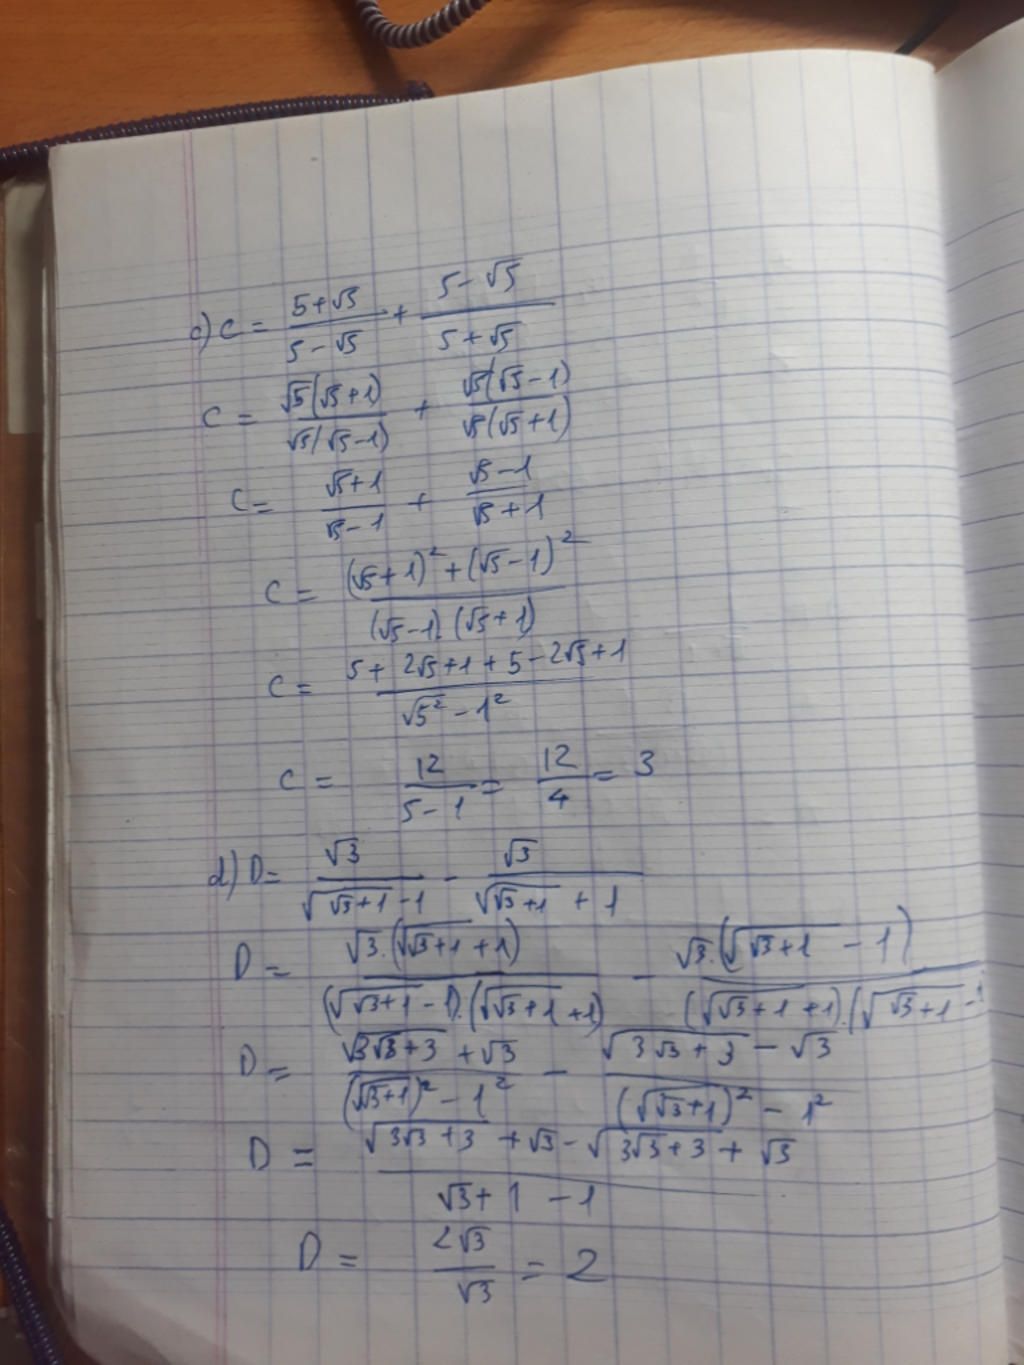 c) C = (5+√5)/(5-√5) + (5-√5)/(5+√5)
C = (√5(√5+1))/(√5(√5-1)) + (√5(√5-1))/(√5(√5+1))
C = (√5+1)/(√5-1) + (√5-1)/(√5+1)
C = ((√5+1)²+(√5-1)²)/((√5-1).(√5+1))
C = (5+2√5+1+5-2√5+1)/(√5²-1²)
C = 12/(5-1) = 12/4 = 3
d) D = √3/(√(√3+1)-1) - √3/(√(√3+1)+1)
D = (√3.(√(√3+1)+1))/((√(√3+1)-1).(√(√3+1)+1)) - (√3.(√(√3+1)-1))/((√(√3+1)+1).(√(√3+1)-1
D = (√(3√3+3)+√3)/((√(√3+1))²-1²) - (√(3√3+3)-√3)/((√(√3+1))²-1²)
D = (√(3√3+3)+√3-√(3√3+3)+√3)/(√3+1-1)
D = 2√3/√3 = 2